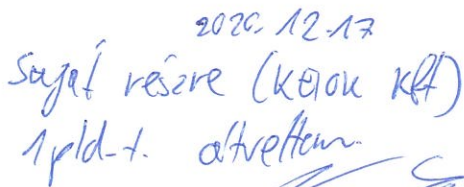 2020.12.17
Saját részre (KEIOK Kft)
1 pld-t. átvettem.